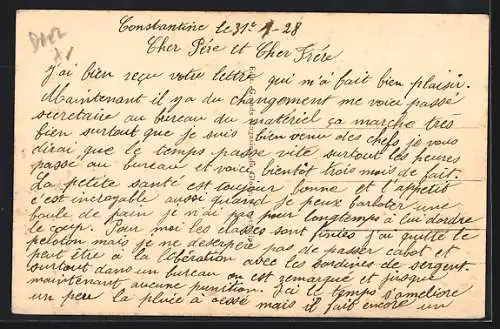 Constantine le 31-1-28
Cher Père et Cher Frère
J'ai bien reçu votre lettre qui m'a fait bien plaisir.
Maintenant il y a du changement me voici passé
secretaire au bureau du matériel ça marche très
bien surtout que je suis bien venu des chefs je vous
dirai que le temps passe vite surtout les heures
passé au bureau et voici bientôt trois mois de fait.
La petite santé est toujour bonne et l'appetit
c'est incroyable aussi quand je peux barboter une
boule de pain je n'ai pas pour longtemps à lui tordre
le coup. Pour moi les classes sont finies j'ai quitté le
peloton mais je ne desespère pas de passer cabot et
peut être à la libération avec les sardines de sergent.
surtout dans un bureau on est remarqué et jusque
maintenant aucune punition. Ici le temps s'améliore
un peu la pluie a cessé mais il fait encore un